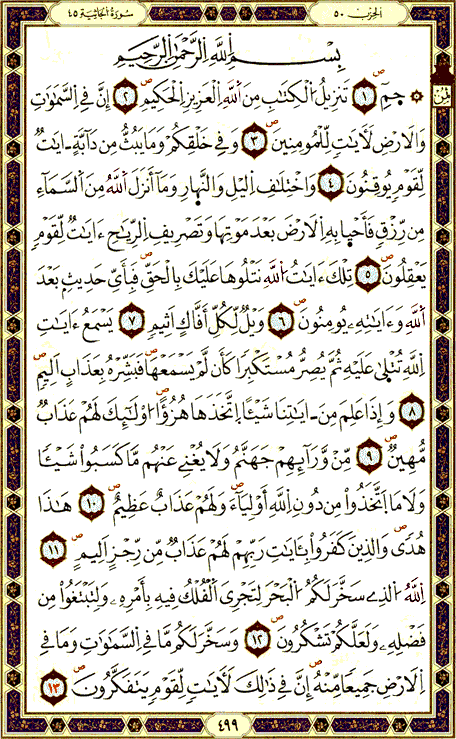 سُورَةُ الْجَاثِيَةِ ٤٥
الحزب ٥٠
بِسْمِ اِللَّهِ اِلرَّحْمَٰنِ اِلرَّحِيمِ
ثمن
۞ حَمِٓ ص ١ تَنزِيلُ اُلْكِتَٰبِ مِنَ اَللَّهِ اِلْعَزِيزِ اِلْحَكِيمِ ص ٢ إِنَّ فِے اِلسَّمَٰوَٰتِ
وَالَارْضِ لَأٓيَٰتٖ لِّلْمُومِنِينَ ص ٣ وَفِے خَلْقِكُمْ وَمَا يَبُثُّ مِن دَآبَّةٍ ـ ايَٰتٞ
لِّقَوْمٖ يُوقِنُونَ ص ٤ وَاخْتِلَٰفِ اِليْلِ وَالنَّهارِ وَمَآ أَنزَلَ اَللَّهُ مِنَ اَلسَّمَآءِ
مِن رِّزْقٖ فَأَحْيا بِهِ اِلَارْضَ بَعْدَ مَوْتِهَا وَتَصْرِيفِ اِلرِّيَٰحِ ءَايَٰتٞ لِّقَوْمٖ
يَعْقِلُونَ ص ٥ تِلْكَ ءَايَٰتُ اُللَّهِ نَتْلُوهَا عَلَيْكَ بِالْحَقِّ ص فَبِأَيِّ حَدِيثِۢ بَعْدَ
اَللَّهِ وَءَايَٰتِهِۦ يُومِنُونَ ص ٦ وَيْلٞ لِّكُلِّ أَفَّاكٍ اَثِيمٖ ص ٧ يَسْمَعُ ءَايَٰتِ
اِللَّهِ تُتْلَىٰ عَلَيْهِ ثُمَّ يُصِرُّ مُسْتَكْبِراٗ كَأَن لَّمْ يَسْمَعْهَا ص فَبَشِّرْهُ بِعَذَابٍ اَلِيمٖ ص
٨ وَإِذَا عَلِمَ مِنَ ـ ايَٰتِنَا شَيْـٔاً اِتَّخَذَهَا هُزُؤاً ص اوْلَٰٓئِكَ لَهُمْ عَذَابٞ
مُّهِينٞ ص ٩ مِّنْ وَّرَآئِهِمْ جَهَنَّمُ وَلَا يُغْنِے عَنْهُم مَّا كَسَبُواْ شَيْـٔاٗ
وَلَا مَا اَتَّخَذُواْ مِن دُونِ اِللَّهِ أَوْلِيَآءَ ص وَلَهُمْ عَذَابٌ عَظِيمٌ ص ١٠ هَٰذَا
هُدىٗ ص وَالذِينَ كَفَرُواْ بِـَٔايَٰتِ رَبِّهِمْ لَهُمْ عَذَابٞ مِّن رِّجْزٍ اَلِيمٖ ص ١١
اِللَّهُ اُلذِے سَخَّرَ لَكُمُ اُلْبَحْرَ لِتَجْرِيَ اَلْفُلْكُ فِيهِ بِأَمْرِهِۦ وَلِتَبْتَغُواْ مِن
فَضْلِهِۦ وَلَعَلَّكُمْ تَشْكُرُونَ ص ١٢ وَسَخَّرَ لَكُم مَّا فِے اِلسَّمَٰوَٰتِ وَمَا فِے
اِلَارْضِ جَمِيعاٗ مِّنْهُ ص إِنَّ فِے ذَٰلِكَ لَأٓيَٰتٖ لِّقَوْمٖ يَتَفَكَّرُونَ ص ١٣
٤٩٩